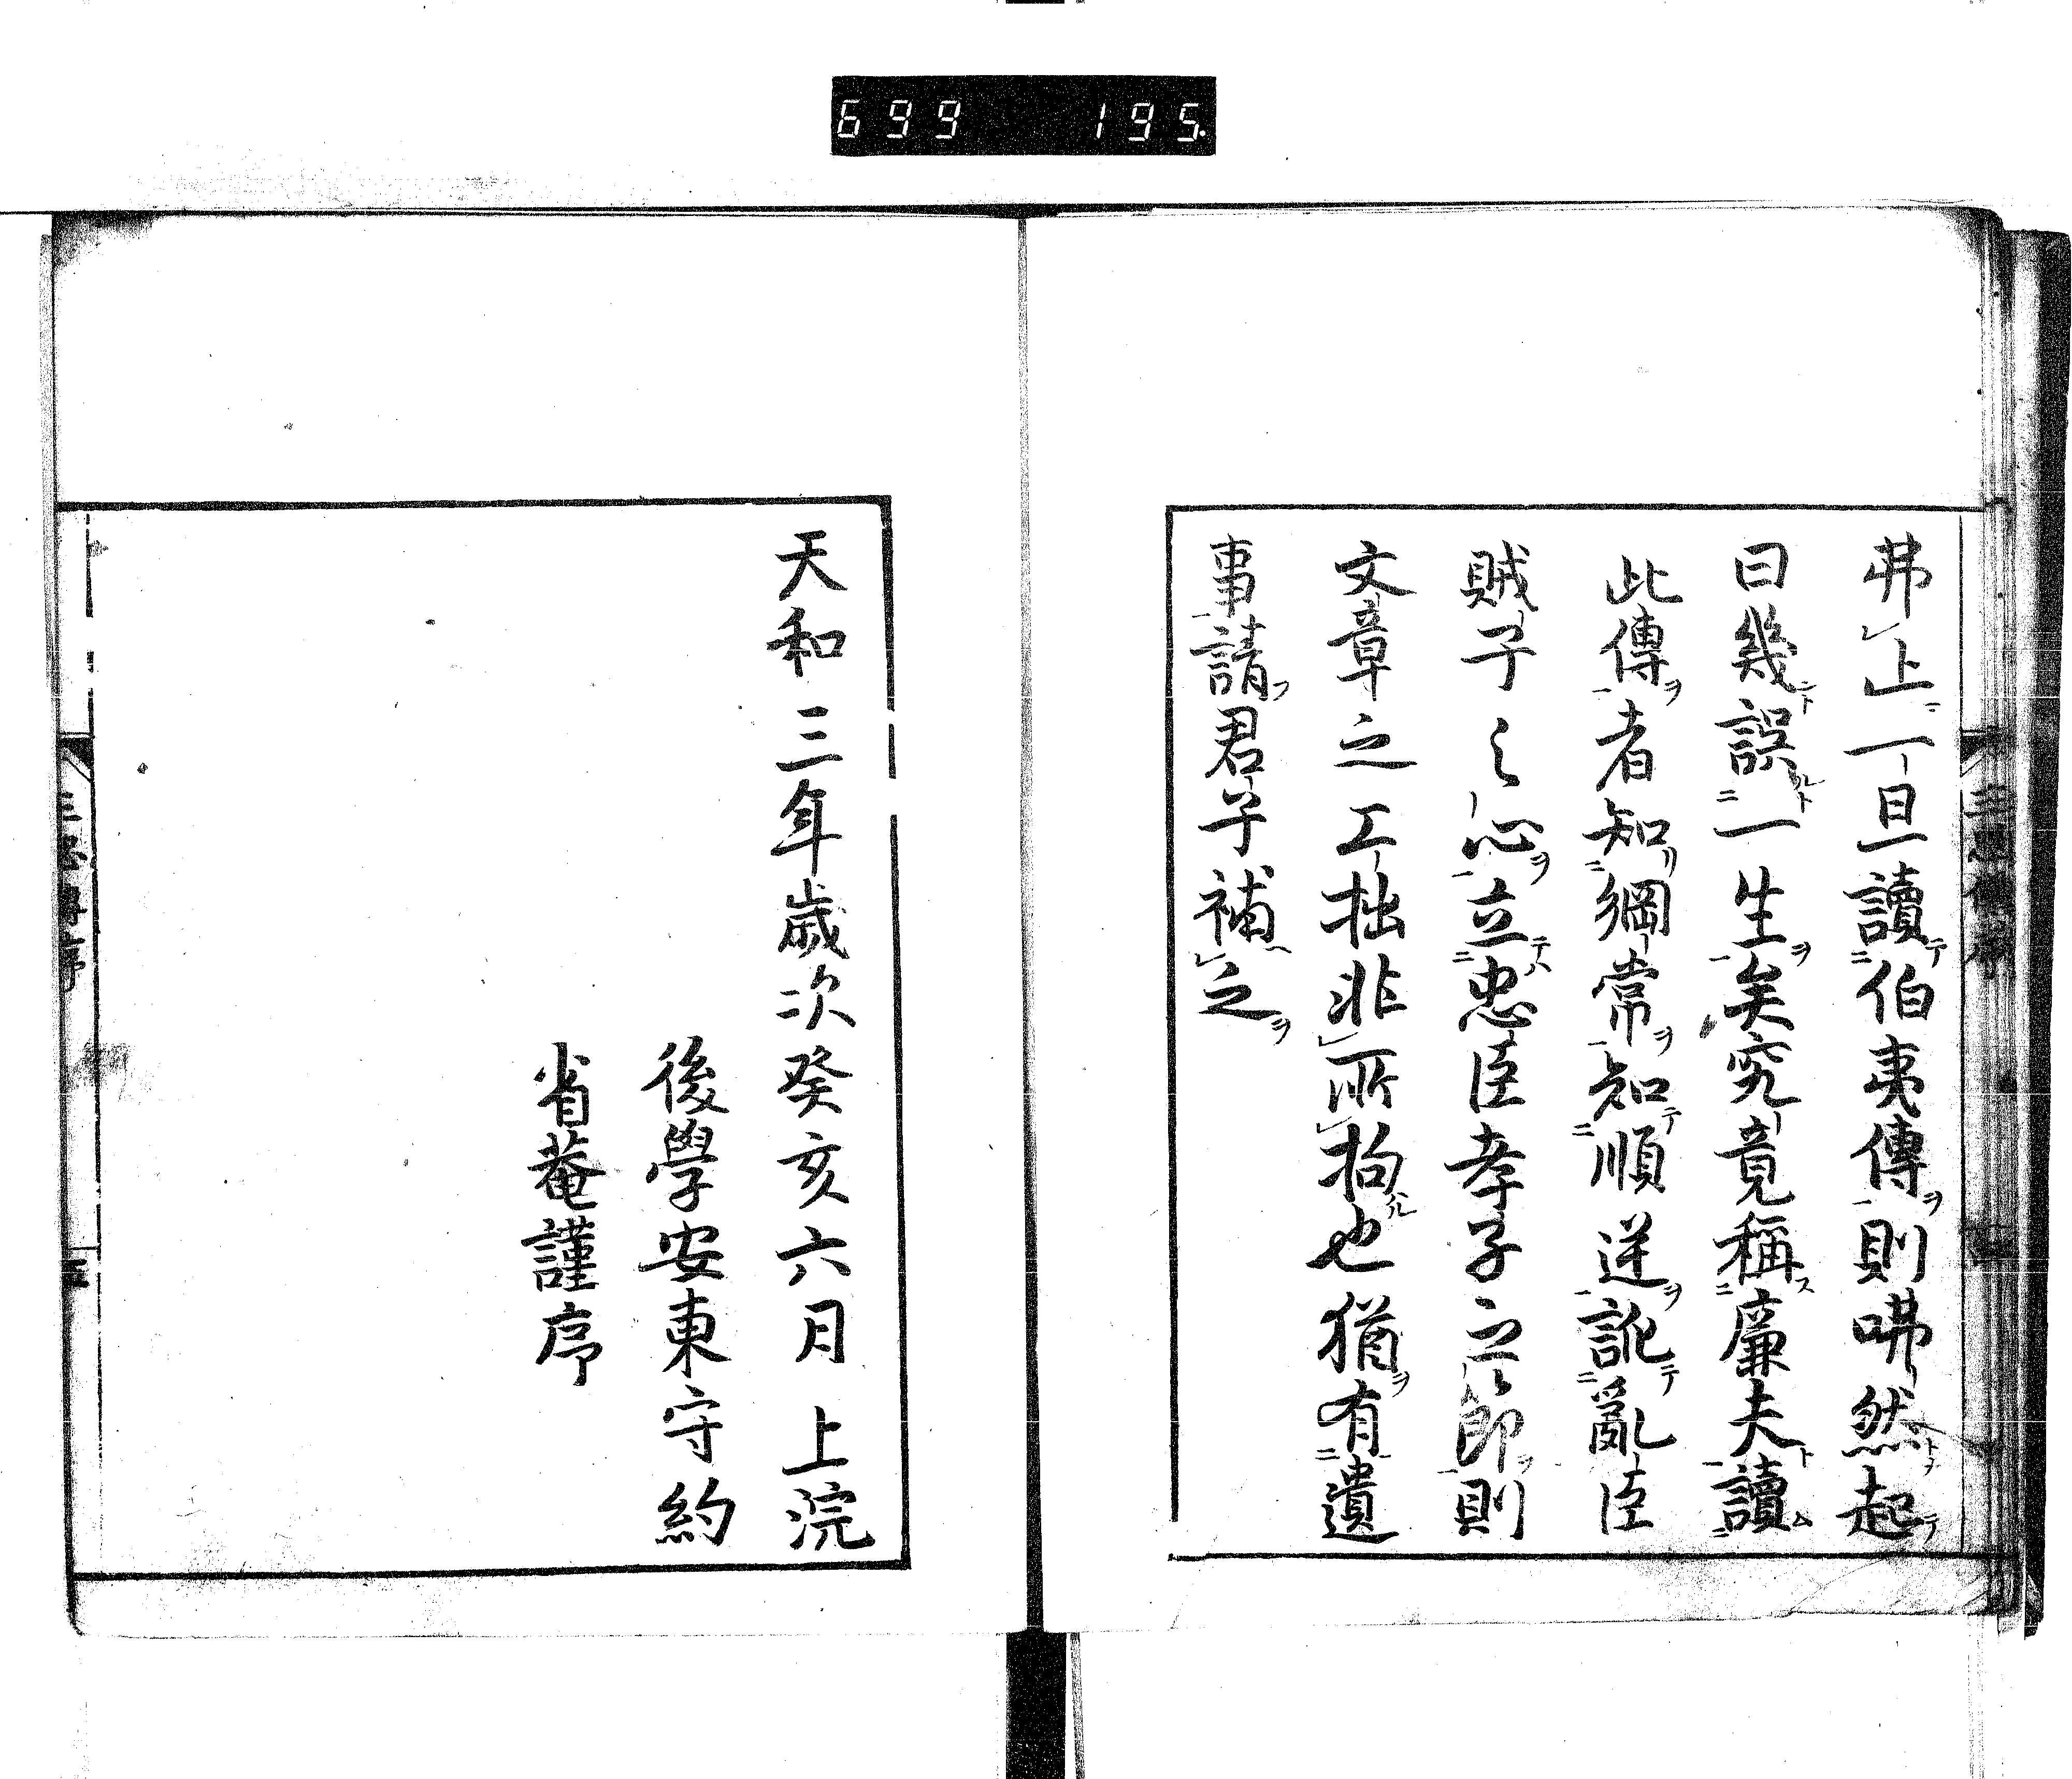 699 195.
弗止一旦讀伯夷傳則咈然起
曰幾誤一生矣究竟稱廉夫讀
此傳者知綱常知順逆訛亂臣
賊子之心立忠臣孝子之節則
文章之工拙非所拘也猶有遺
事請君子補之
天和三年歲次癸亥六月上浣
後學安東守約
省菴謹序
三忠傳序